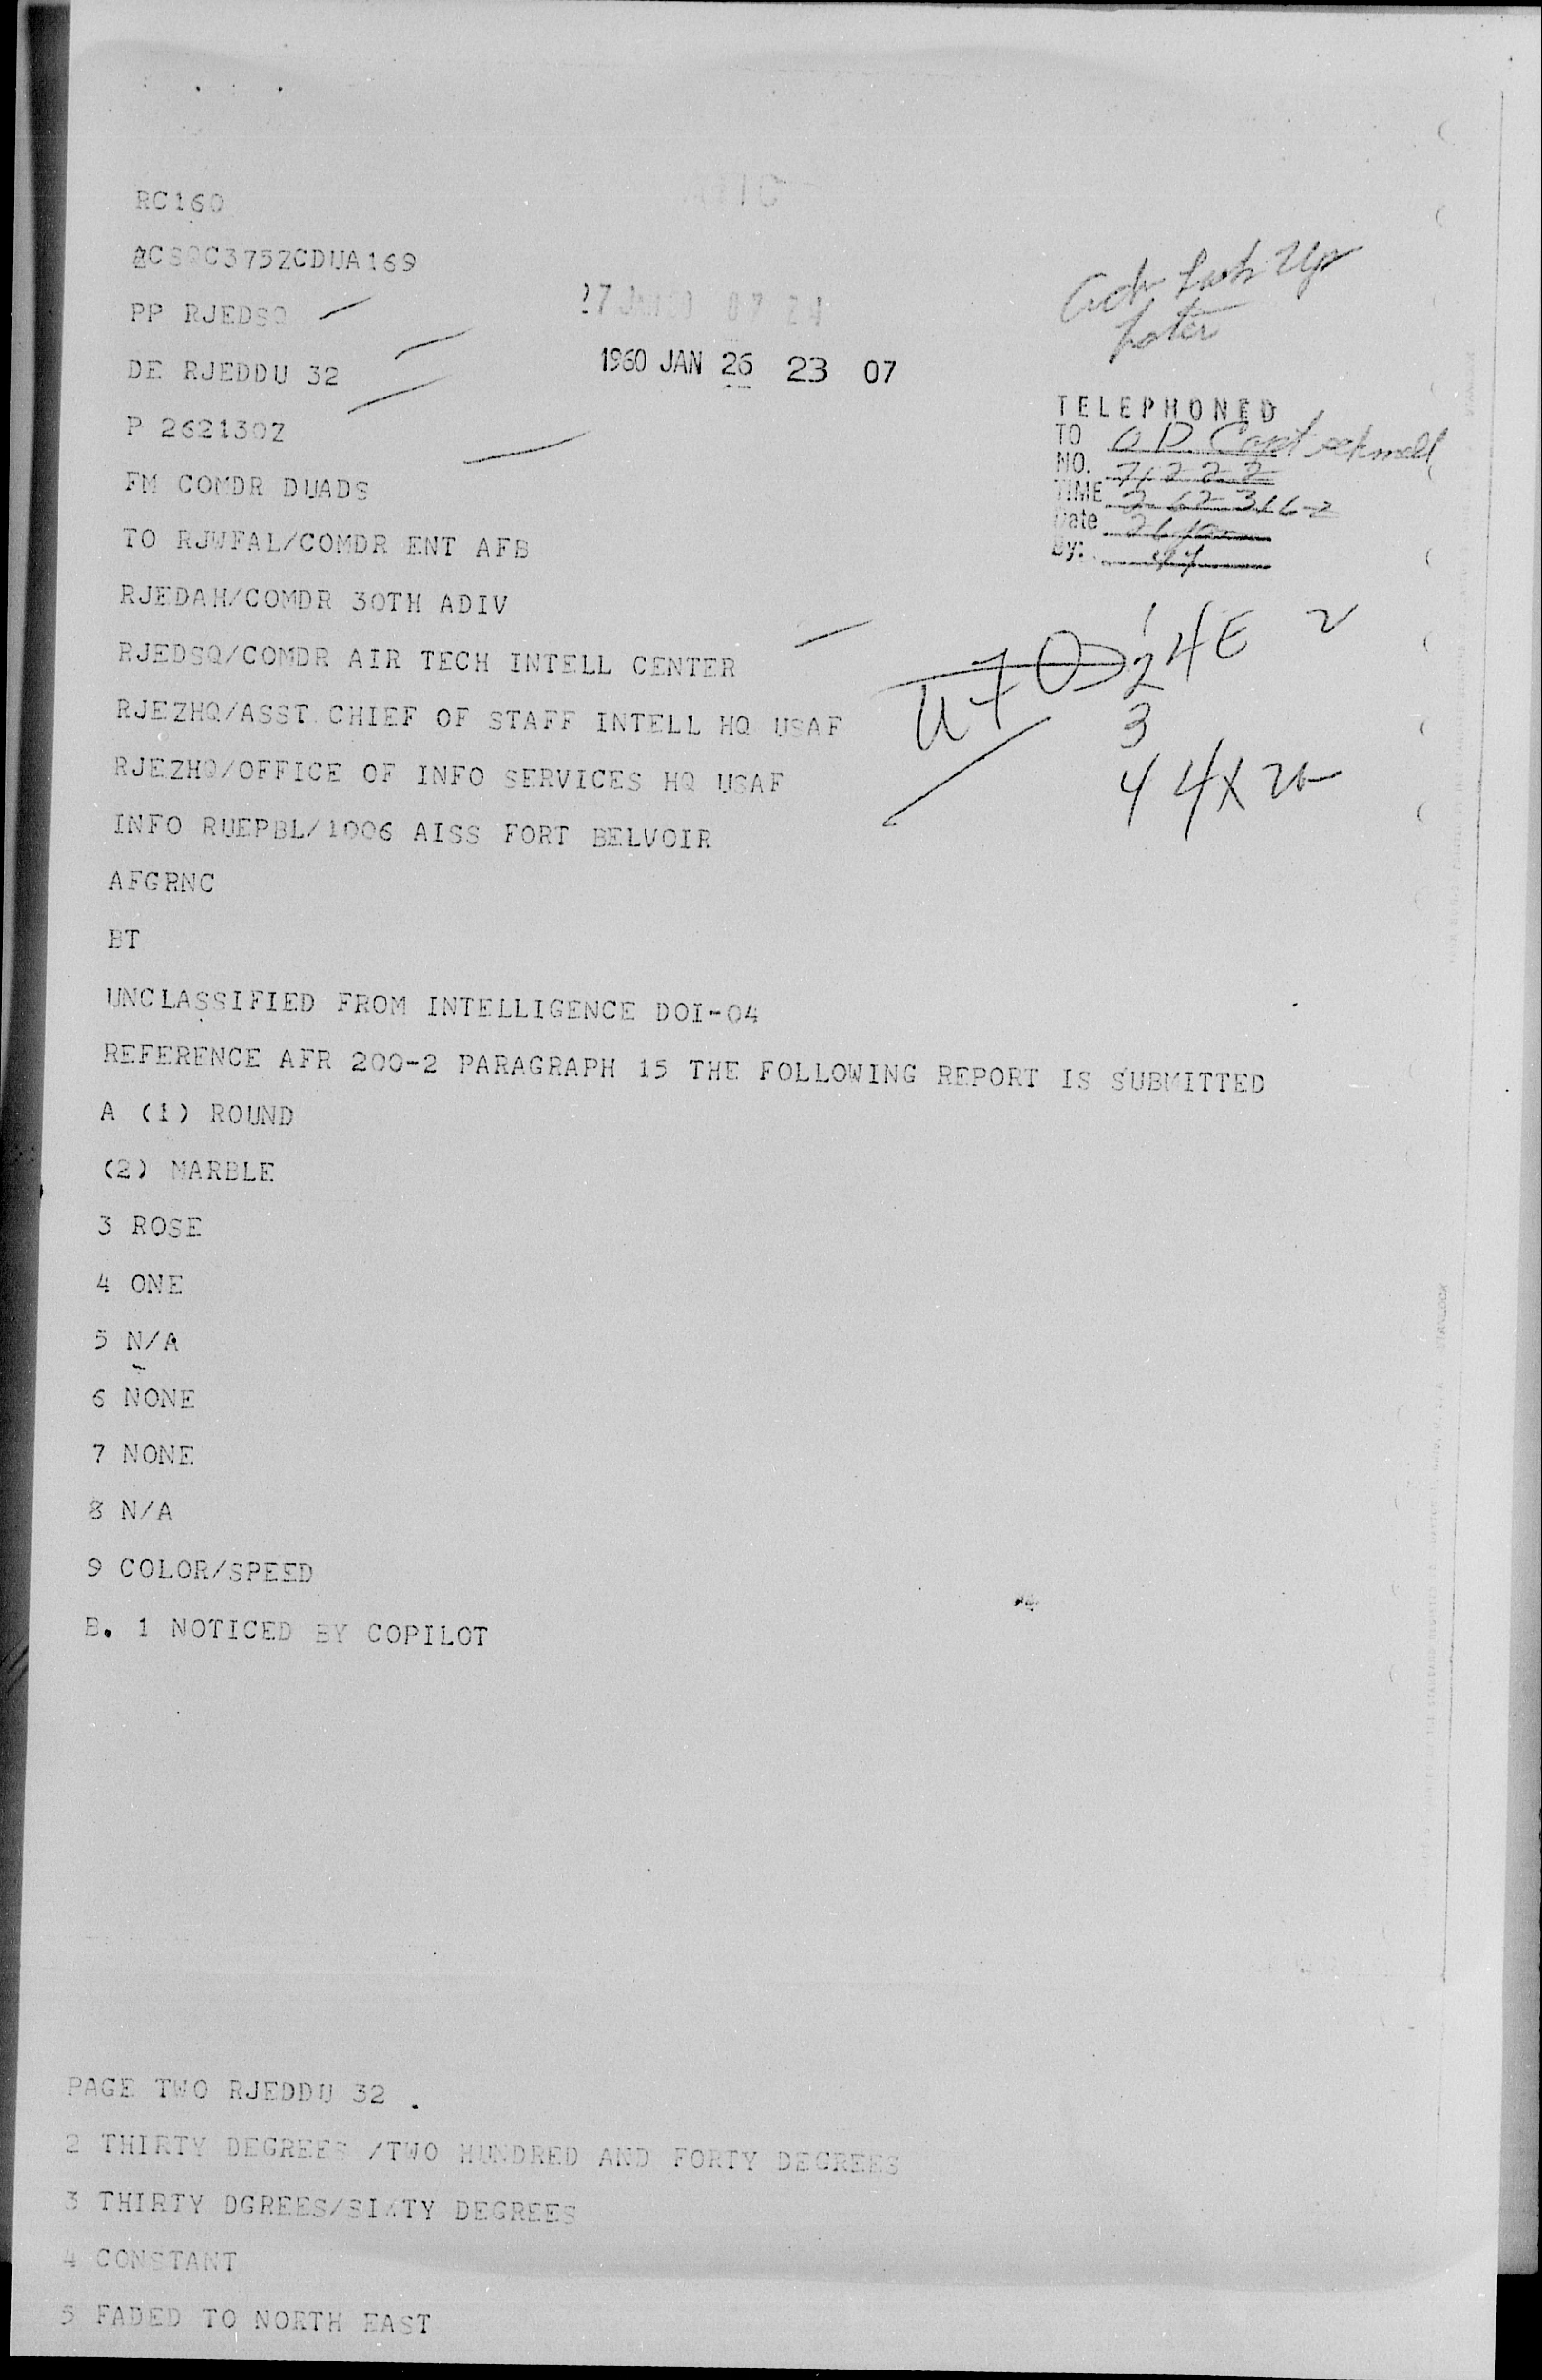 RC160
ZCSQC375ZCDUA169
PP RJEDSQ
27 JAN 60 07 24
DE RJEDDU 32
1960 JAN 26 23 07
P 262130Z
FM COMDR DUADS
TO RJWFAL/COMDR ENT AFB
RJEDAH/COMDR 30TH ADIV
RJEDSQ/COMDR AIR TECH INTELL CENTER
RJEZHQ/ASST CHIEF OF STAFF INTELL HQ USAF
RJEZHQ/OFFICE OF INFO SERVICES HQ USAF
INFO RUEPBL/1006 AISS FORT BELVOIR
AFGRNC
BT
Up
Later
TELEPHONED
TO O D Capt
NO. 71222
TIME 262316Z
Date 26 Jan
By:
1 4E 2
2
3
4 4X
UNCLASSIFIED FROM INTELLIGENCE DOI-04
REFERENCE AFR 200-2 PARAGRAPH 15 THE FOLLOWING REPORT IS SUBMITTED
A (1) ROUND
(2) MARBLE
3 ROSE
4 ONE
5 N/A
6 NONE
7 NONE
8 N/A
9 COLOR/SPEED
B. 1 NOTICED BY COPILOT
PAGE TWO RJEDDU 32
2 THIRTY DEGREES /TWO HUNDRED AND FORTY DEGREES
3 THIRTY DGREES/SIXTY DEGREES
4 CONSTANT
5 FADED TO NORTH EAST